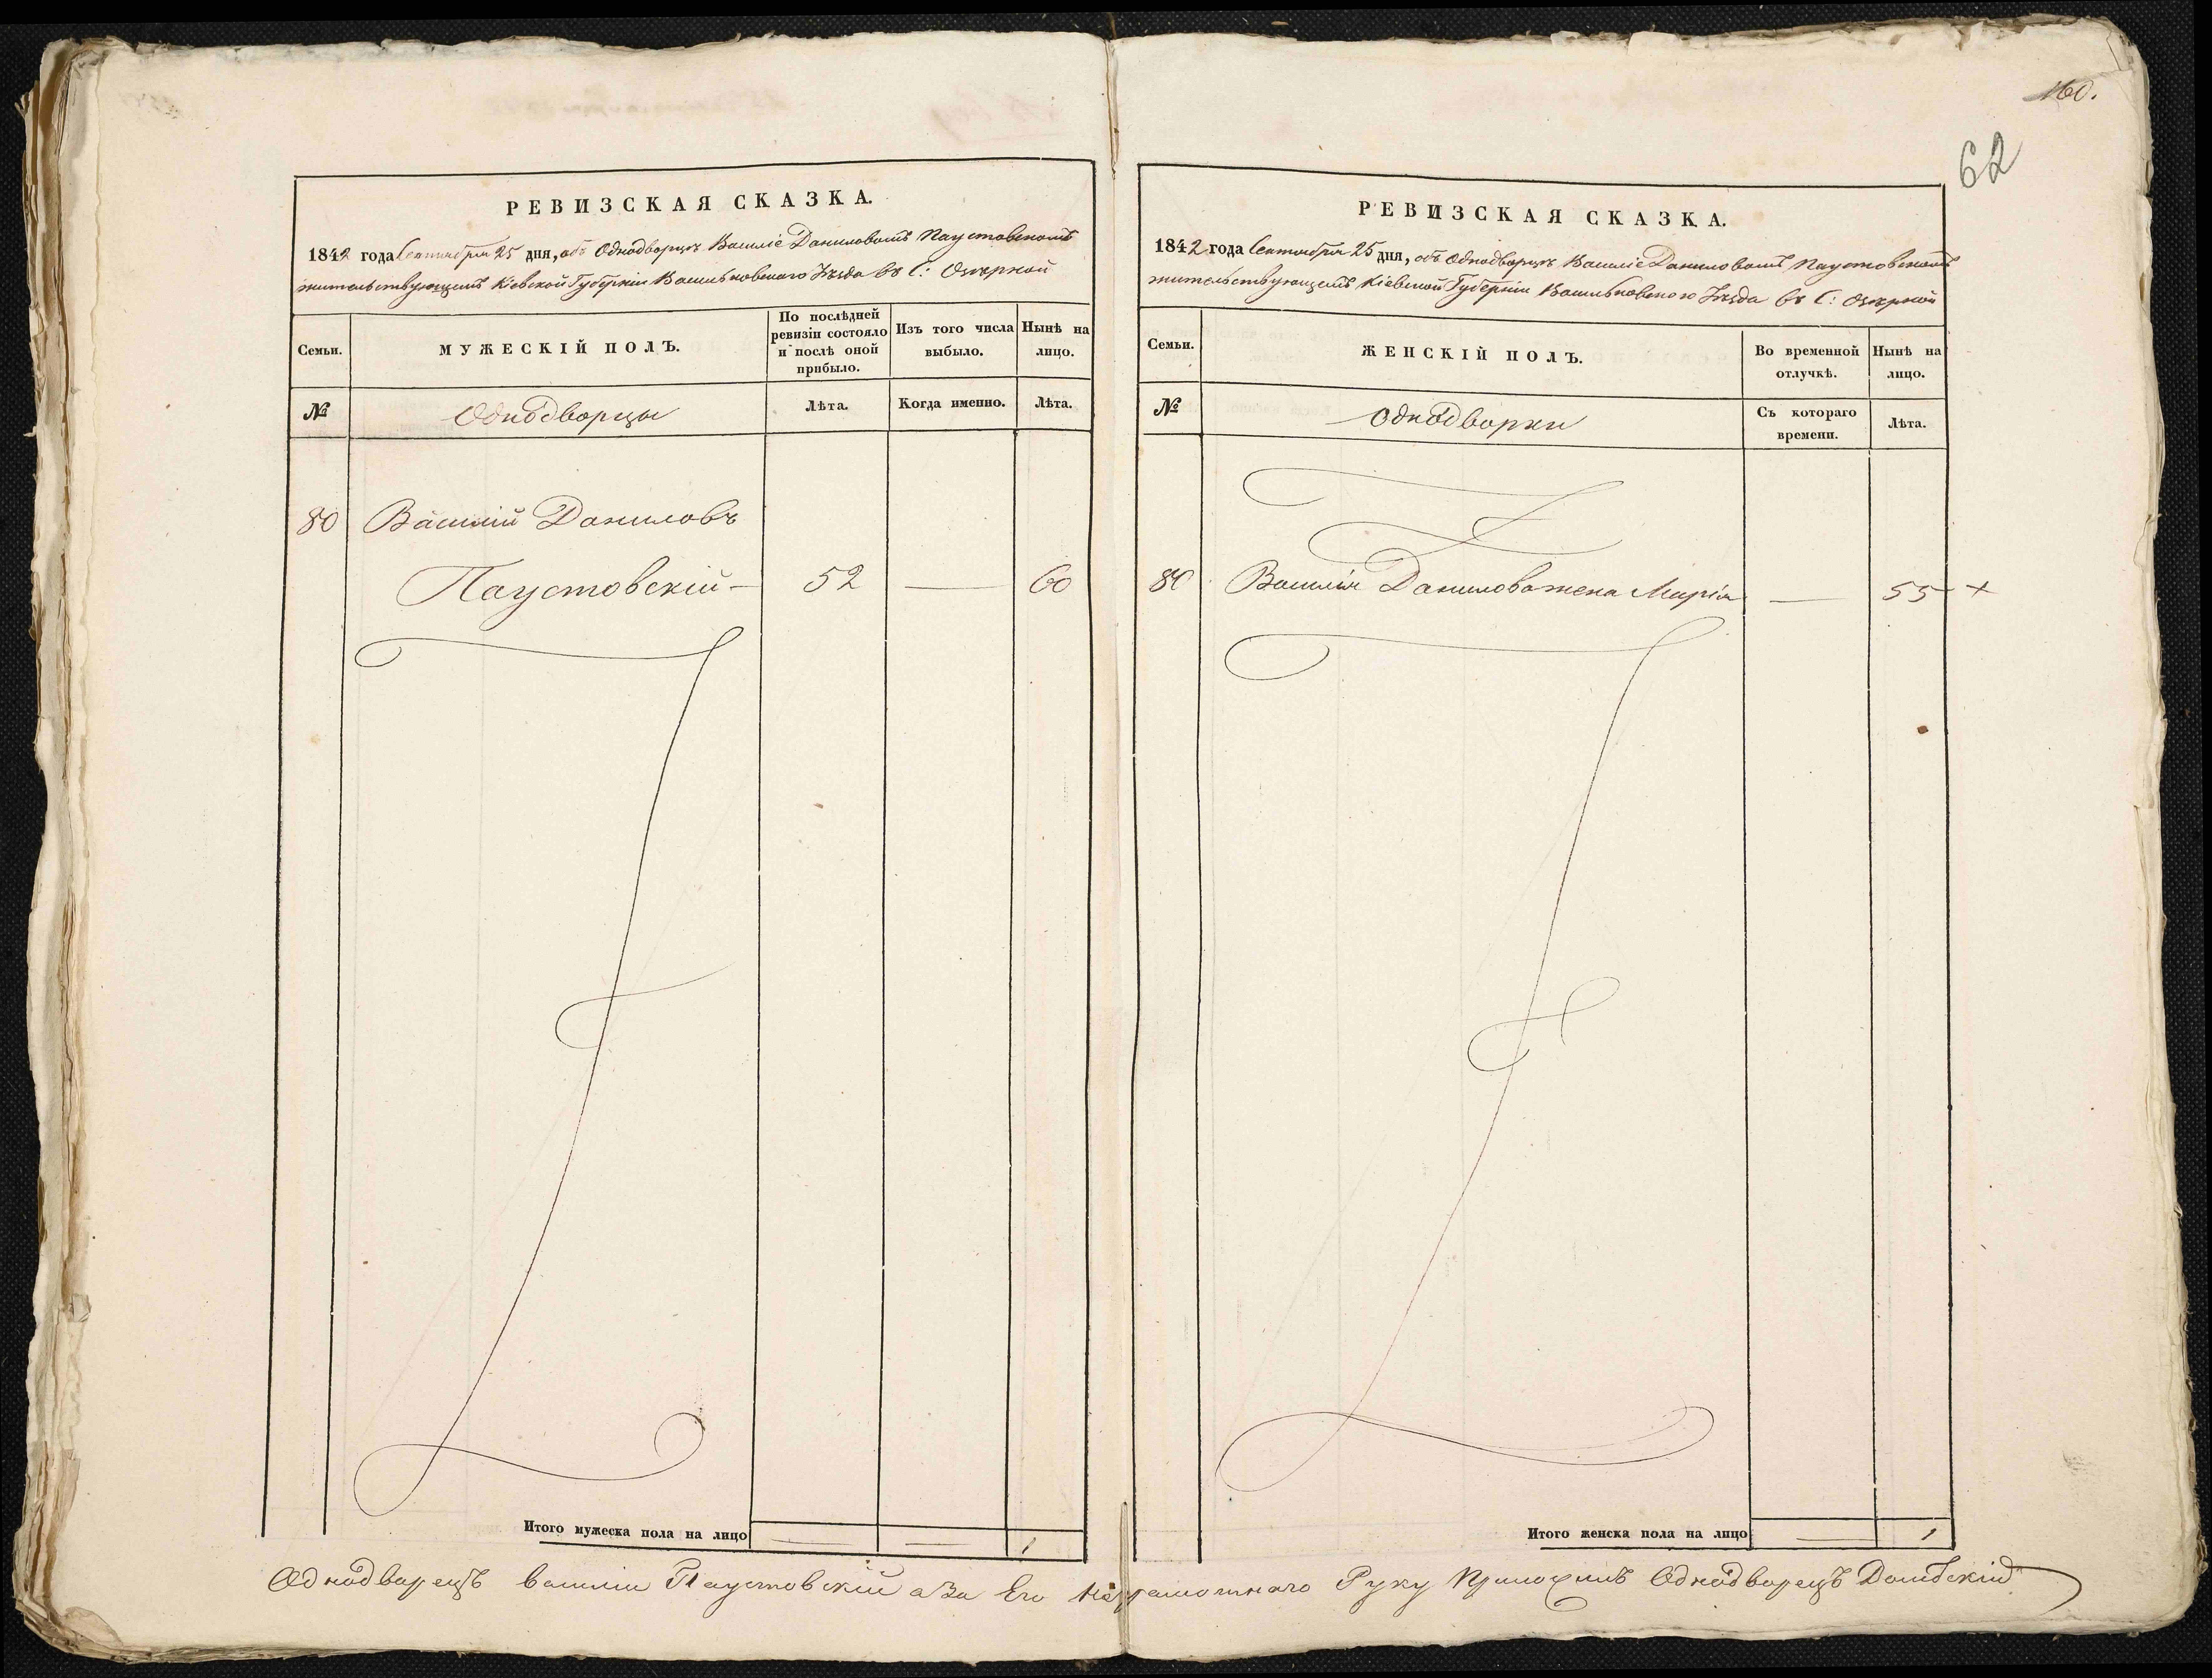 160.
62
РЕВИЗСКАЯ СКАЗКА.
1842 года Сентября 25 дня, объ Однодворцѣ Василіе Даниловомъ Паустовскомъ
жительствующемъ Кіевской Губерніи Васильковскаго Уѣзда въ С: Озѣрной
Семьи.
МУЖЕСКІЙ ПОЛЪ.
По послѣдней ревизіи состояло и послѣ оной прибыло.
Изъ того числа выбыло.
Нынѣ на лицо.
№
Однодворцы
Лѣта.
Когда именно.
Лѣта.
80 Василій Даниловъ
Паустовскій — 52 — 60
Итого мужеска пола на лицо — — 1
РЕВИЗСКАЯ СКАЗКА.
1842 года Сентября 25 дня, объ Однодворцѣ Василіе Даниловомъ Паустовскомъ
жительствующемъ Кіевской Губерніи Васильковского Уѣзда въ С: Озѣрной
Семьи.
ЖЕНСКІЙ ПОЛЪ.
Во временной отлучкѣ.
Нынѣ на лицо.
№
Однодворки
Съ котораго времени.
Лѣта.
80 Василія Данилова жена Марія — 55 +
Итого женска пола на лицо — 1
Однодворецъ Василии Паустовскии а За Его неграмотнаго Руку Приложилъ Однодворецъ Домбскій